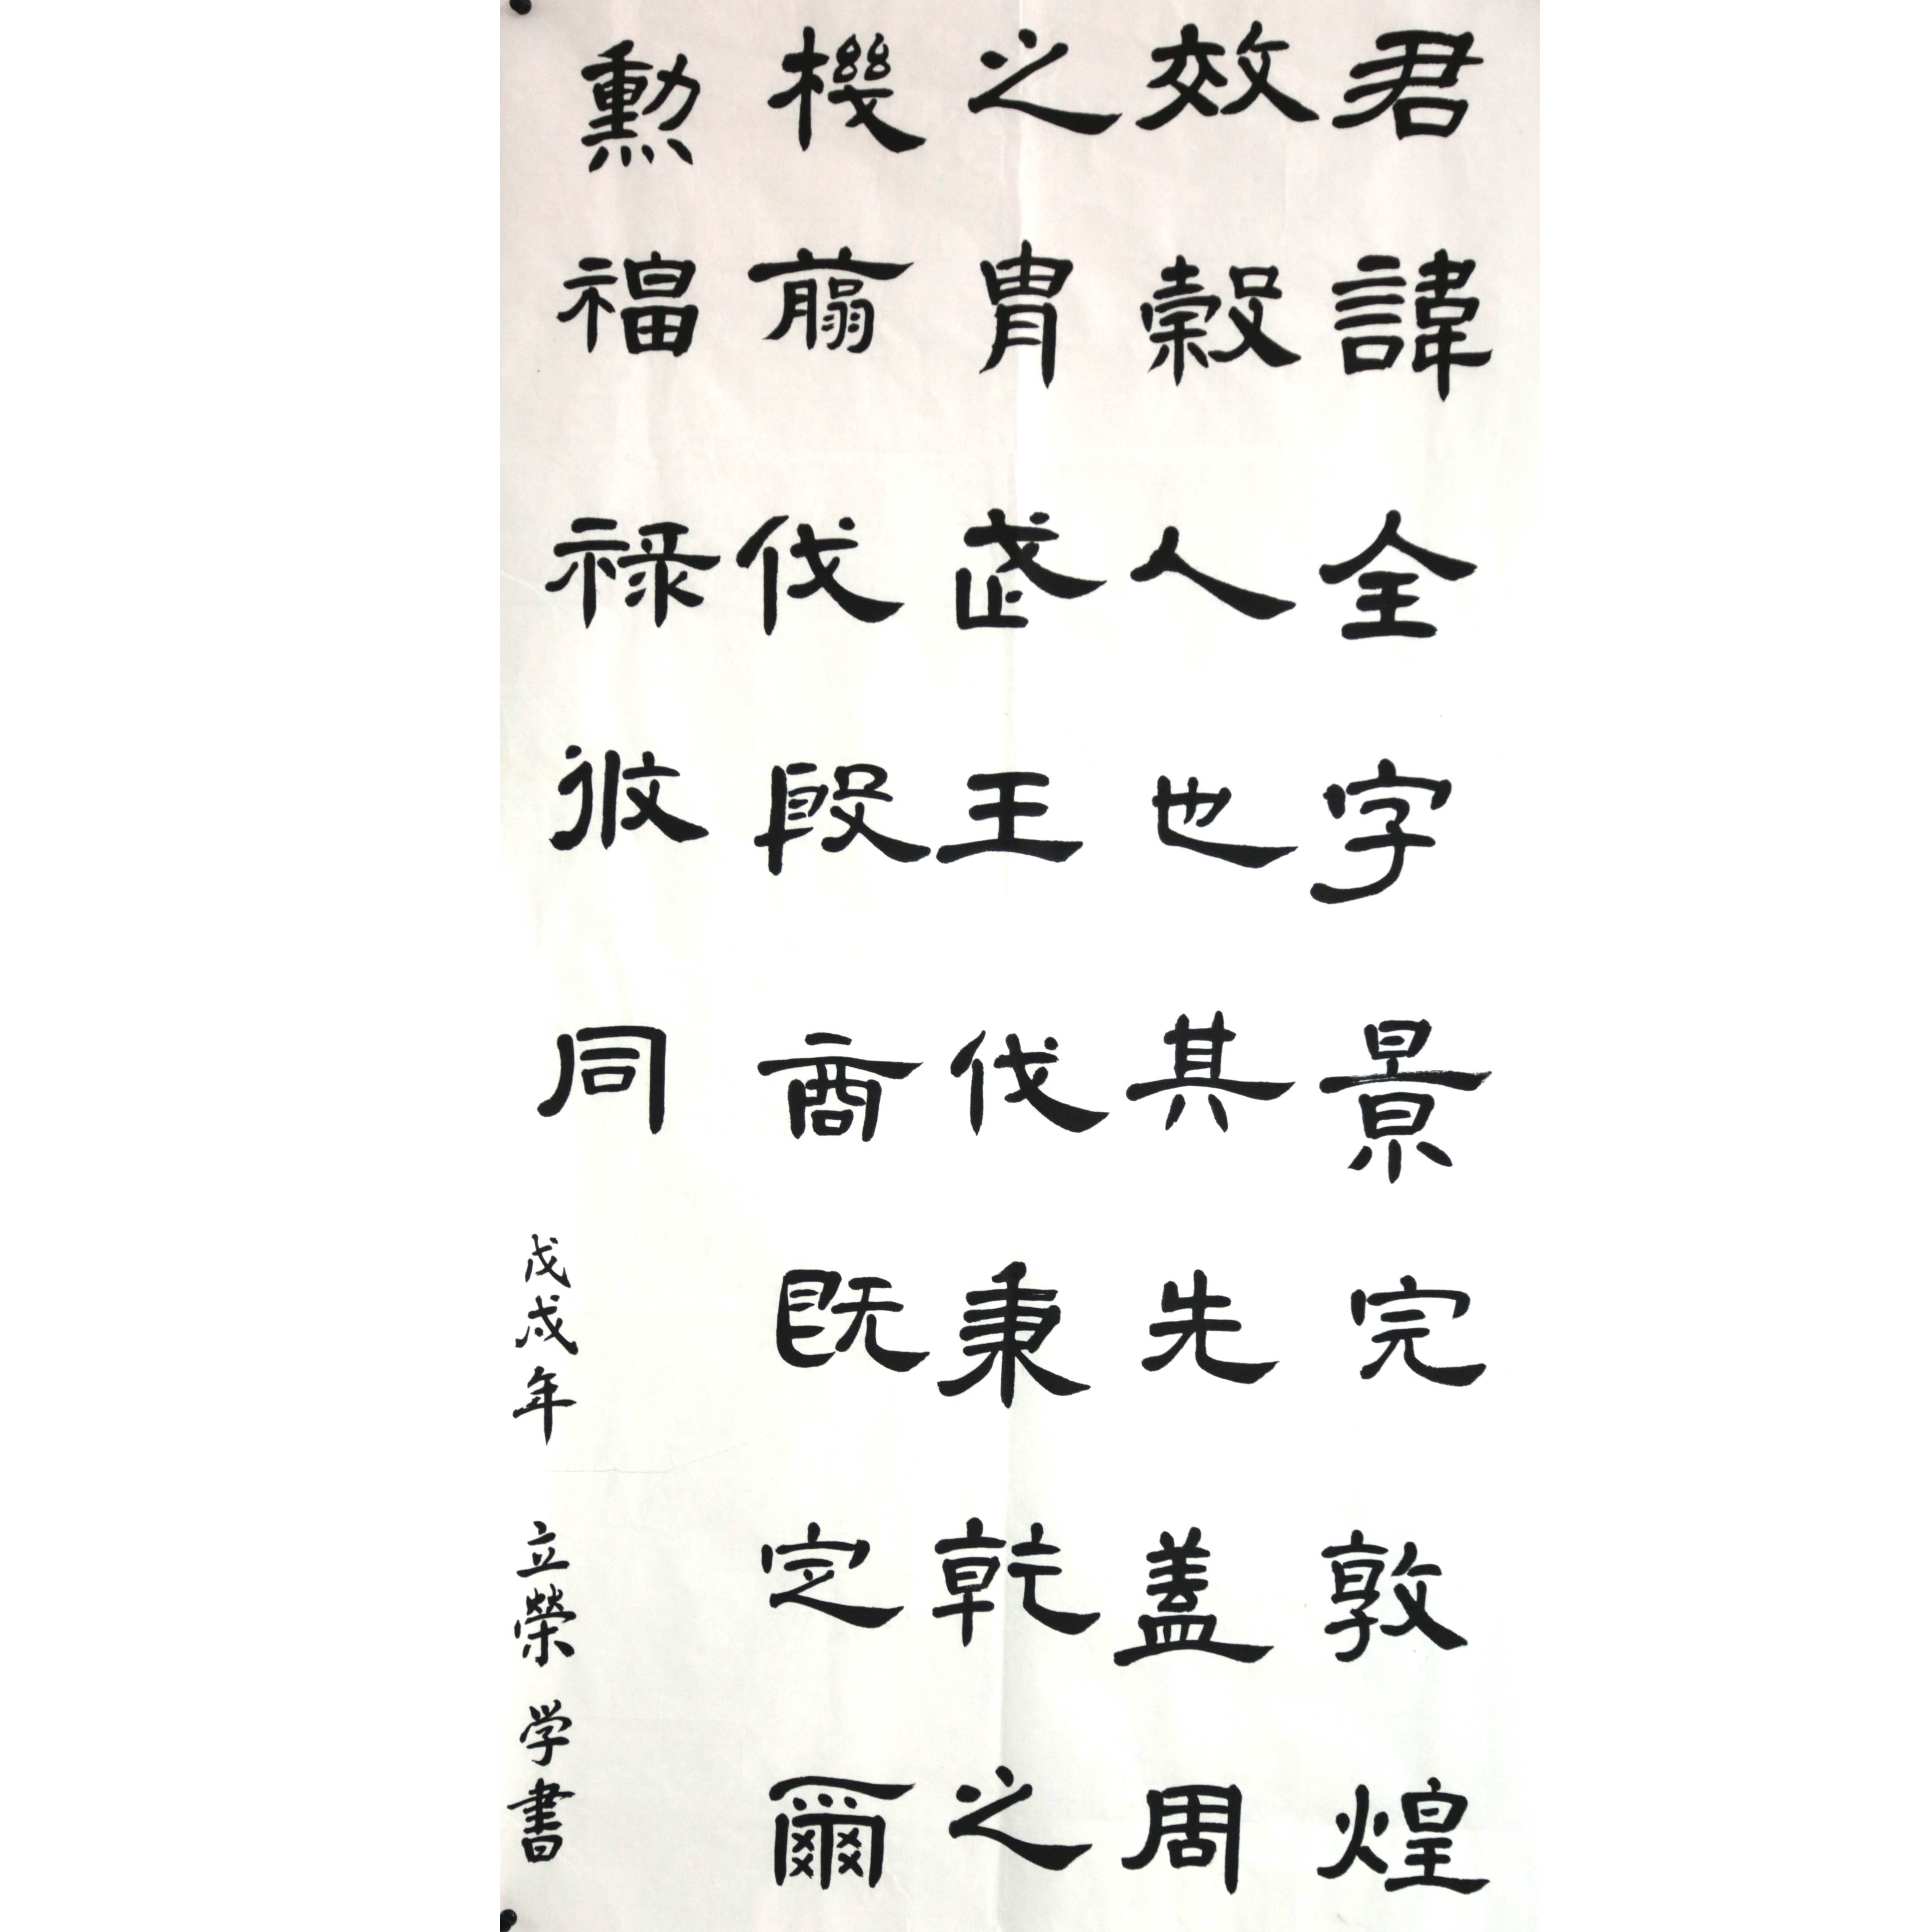 君諱全字景完敦煌
效穀人也其先蓋周
之胄武王伐秉乾之
機翦伐殷商既定爾
勲福禄攸同
戊戌年 立榮学書